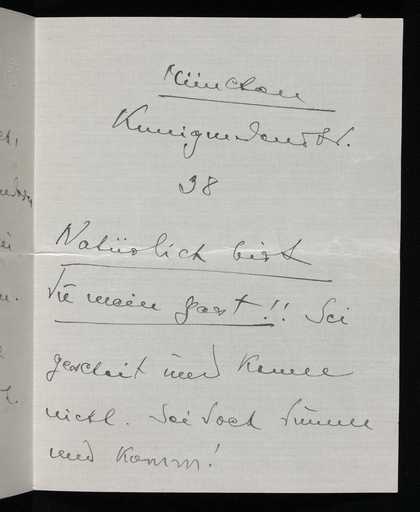 München
Kunigundenstr.
28
Natürlich bist
Du mein Gast!! Sei
gescheit und komme
nicht. Sei doch dumm
und komm!